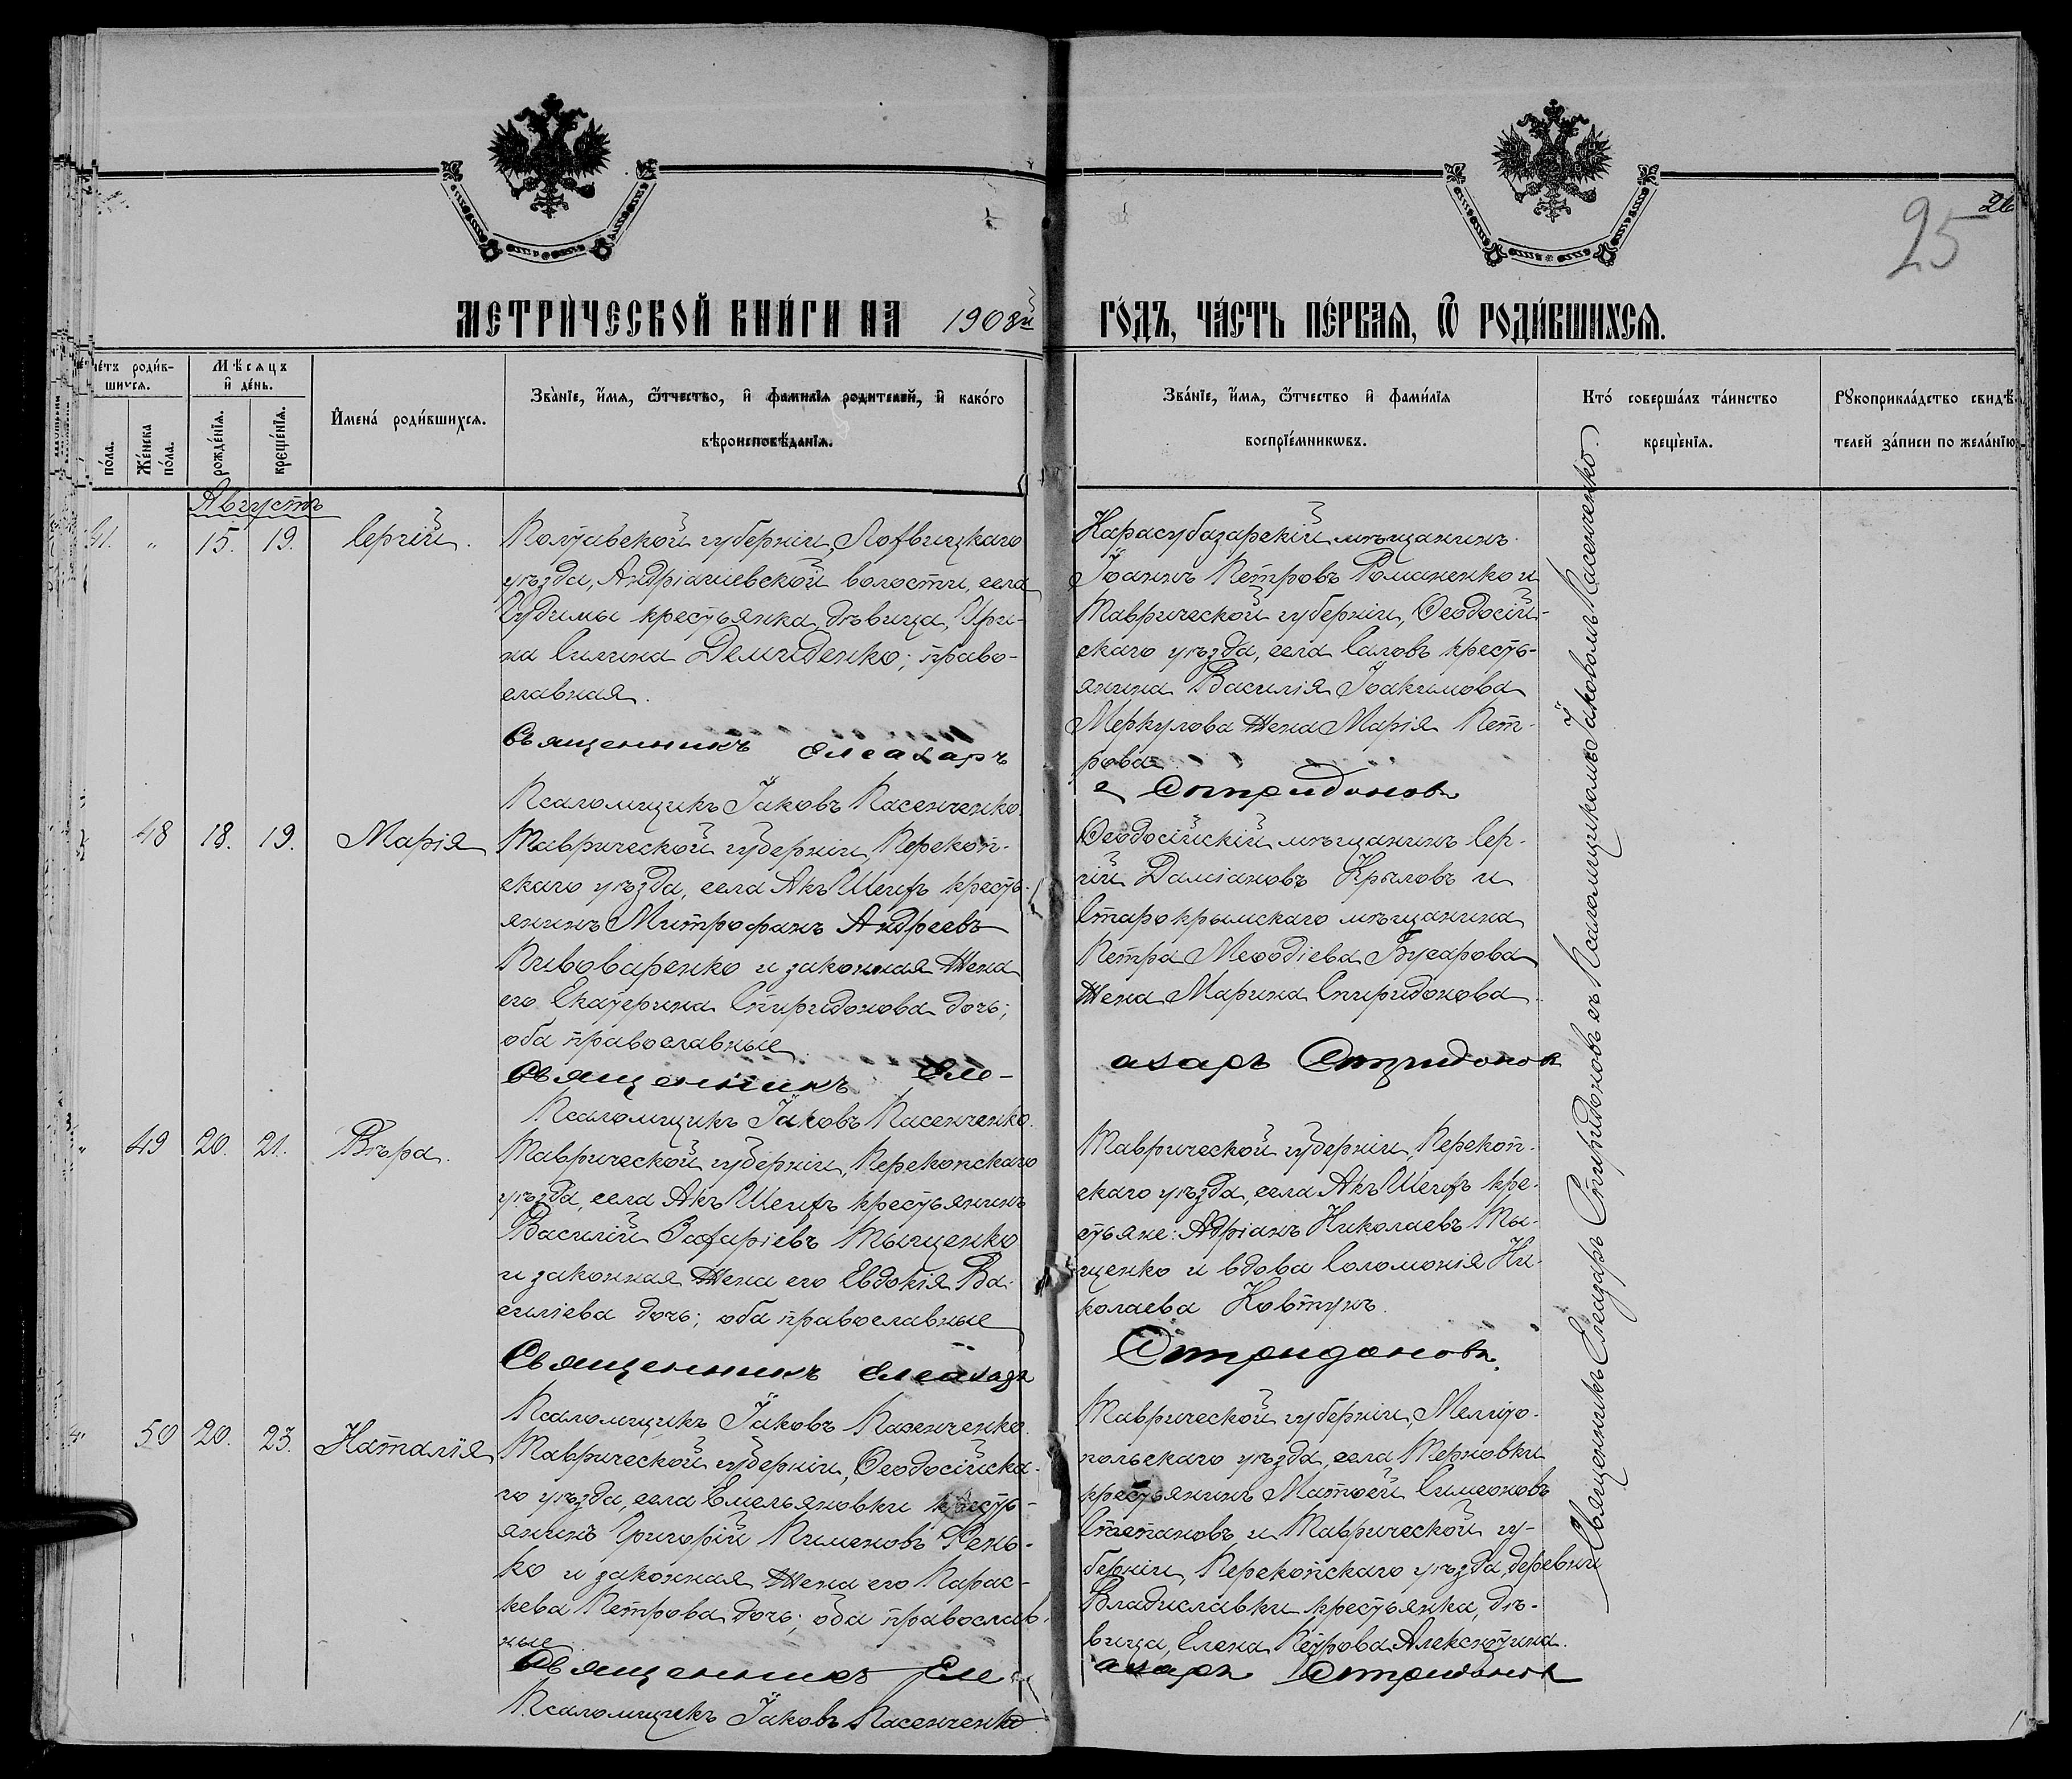 26
25
МЕТРИ́ЧЕСКОЙ КНИ́ГИ НА 1908й ГО́ДЪ, ЧА́СТЬ ПЕ́РВАЯ, Ѿ РОДИ́ВШИХСЯ.
Сче́тъ роди́в-
шихся.
Мѣсяцъ
и҆ де́нь.
И҆мена́ роди́вшихся.
Зва́нїе, и҆́мя, ѻ҆́тчество, и҆ фами́лїя роди́телей, и҆ како́го
вѣроисповѣ́данїя.
Зва́нїе, и҆́мя, ѻ҆́тчество и҆ фами́лїя
воспрїе́мникωвъ.
Кто́ соверша́лъ та́инство
креще́нїя.
Рꙋкоприкла́дство свидѣ́-
телей за́писи по жела́нїю.
по́ла.
Же́нска
по́ла.
рожде́нїя.
креще́нїя.
Августъ
41. " 15. 19. Сергій.
Полтавской губерніи, Лохвицкаго
уѣзда, Андріяшевской волости, села
Гудимы крестьянка дѣвица, Ири-
на Силина Демиденко; право-
славная.
Священникъ Елеазаръ
Псаломщикъ Іаковъ Пасенченко.
Карасубазарскій мѣщанинъ
Іоаннъ Петровъ Романенко и
Таврической губерніи, Ѳеодосій-
скаго уѣзда, села Саловъ кресть-
янина Василія Іоакимова
Меркулова жена Марія Пет-
рова.
Спиридоновъ
48 18. 19. Марія
Таврической губерніи, Перекоп-
скаго уѣзда, села Акъ Шеихъ кресть-
янинъ Митрофанъ Андреевъ
Пивоваренко и законная жена
его Екатерина Спиридонова дочь;
оба православные
Священникъ Еле-
Псаломщикъ Іаковъ Пасенченко.
Ѳеодосійскій мѣщанинъ Сер-
гій Даміановъ Крыловъ и
Старокрымскаго мѣщанина
Петра Меѳодіева Бусарова
жена Марина Спиридонова.
азаръ Спиридоновъ
" 49 20. 21. Вѣра.
Таврической губерніи, Перекопскаго
уѣзда, села Акъ Шеихъ крестьянинъ
Василій Захаріевъ Тыщенко
и законная жена его Евдокія Ва-
силіева дочь; оба православные
Священникъ Елеазаръ
Псаломщикъ Іаковъ Пасенченко.
Таврической губерніи, Перекоп-
скаго уѣзда, села Акъ Шеихъ кре-
стьяне: Адріанъ Николаевъ Ты-
щенко и вдова Соломонія Ни-
колаева Ковтунъ.
Спиридоновъ.
50 20. 23. Наталія
Таврической губерніи, Ѳеодосійска-
го уѣзда, села Емельяновки кресть-
янинъ Григорій Пименовъ Рень-
ко и законная жена его Парас-
кева Петрова дочь; оба православ-
ные
Священникъ Еле
Псаломщикъ Іаковъ Пасенченко
Таврической губерніи, Мелито-
польскаго уѣзда, села Терновки
крестьянинъ Матѳей Симеоновъ
Степановъ и Таврической гу-
берніи, Перекопскаго уѣзда, деревни
Владиславки крестьянка, дѣ-
вица, Елена Петрова Алексютина.
азаръ Спиридоновъ
Священникъ Елеазаръ Спиридоновъ съ Псаломщикомъ Іаковомъ Пасенченко.